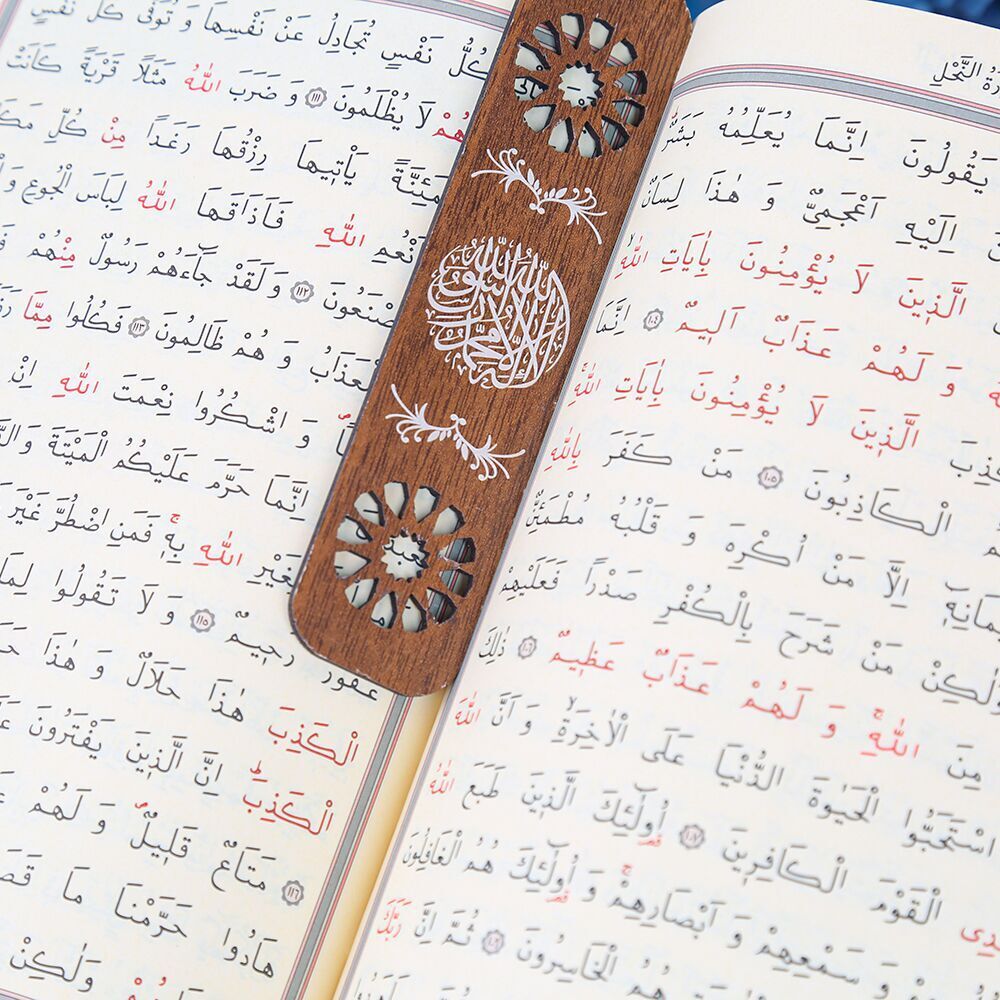 النَّحْلِ
يَقُولُونَ اِنَّمَا يُعَلِّمُهُ بَشَرٌ
اِلَيْهِ اَعْجَمِيٌّ وَ هٰذَا لِسَانٌ
الَّذِينَ لَا يُؤْمِنُونَ بِاٰيَاتِ اللّٰهِۙ
وَ لَهُمْ عَذَابٌ اَلِيمٌ ١٠٤ اِنَّمَا
الَّذِينَ لَا يُؤْمِنُونَ بِاٰيَاتِ اللّٰهِۚ
الْكَاذِبُونَ ١٠٥ مَنْ كَفَرَ بِاللّٰهِ
اِلَّا مَنْ اُكْرِهَ وَ قَلْبُهُ مُطْمَئِنٌّ
مَنْ شَرَحَ بِالْكُفْرِ صَدْرًا فَعَلَيْهِمْ
مِنَ اللّٰهِۚ وَ لَهُمْ عَذَابٌ عَظِيمٌ ١٠٦ ذٰلِكَ
اسْتَحَبُّوا الْحَيٰوةَ الدُّنْيَا عَلَى الْاٰخِرَةِۙ وَ اَنَّ اللّٰهَ
الْقَوْمَ الْكَافِرِينَ ١٠٧ اُولٰٓئِكَ الَّذِينَ طَبَعَ اللّٰهُ
وَ سَمْعِهِمْ وَ اَبْصَارِهِمْۚ وَ اُولٰٓئِكَ هُمُ الْغَافِلُونَ
هُمُ الْخَاسِرُونَ ١٠٩ ثُمَّ اِنَّ رَبَّكَ
كُلُّ نَفْسٍ تُجَادِلُ عَنْ نَفْسِهَا وَ تُوَفّٰى كُلُّ نَفْسٍ
هُمْ لَا يُظْلَمُونَ ١١١ وَ ضَرَبَ اللّٰهُ مَثَلًا قَرْيَةً كَانَتْ
يَاْتِيهَا رِزْقُهَا رَغَدًا مِنْ كُلِّ
اللّٰهِ فَاَذَاقَهَا اللّٰهُ لِبَاسَ الْجُوعِ
١١٢ وَلَقَدْ جَٓاءَهُمْ رَسُولٌ مِنْهُمْ
وَ هُمْ ظَالِمُونَ ١١٣ فَكُلُوا مِمَّا
وَ اشْكُرُوا نِعْمَتَ اللّٰهِ اِنْ
اِنَّمَا حَرَّمَ عَلَيْكُمُ الْمَيْتَةَ
اللّٰهِ بِهٖۚ فَمَنِ اضْطُرَّ غَيْرَ
رَحِيمٌ ١١٥ وَ لَا تَقُولُوا لِمَا
الْكَذِبَ هٰذَا حَلَالٌ وَ هٰذَا
الْكَذِبَۜ اِنَّ الَّذِينَ يَفْتَرُونَ
١١٦ مَتَاعٌ قَلِيلٌ وَ لَهُمْ
هَادُوا حَرَّمْنَا مَا
وَلٰكِنْ
لا إله إلا الله محمد رسول الله